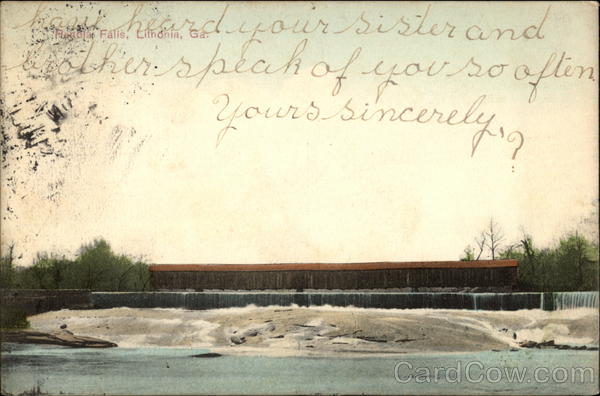 have heard your sister and
Falls, Lithonia, Ga.
brother speak of you so often.
Yours sincerely,
?
CardCow.com